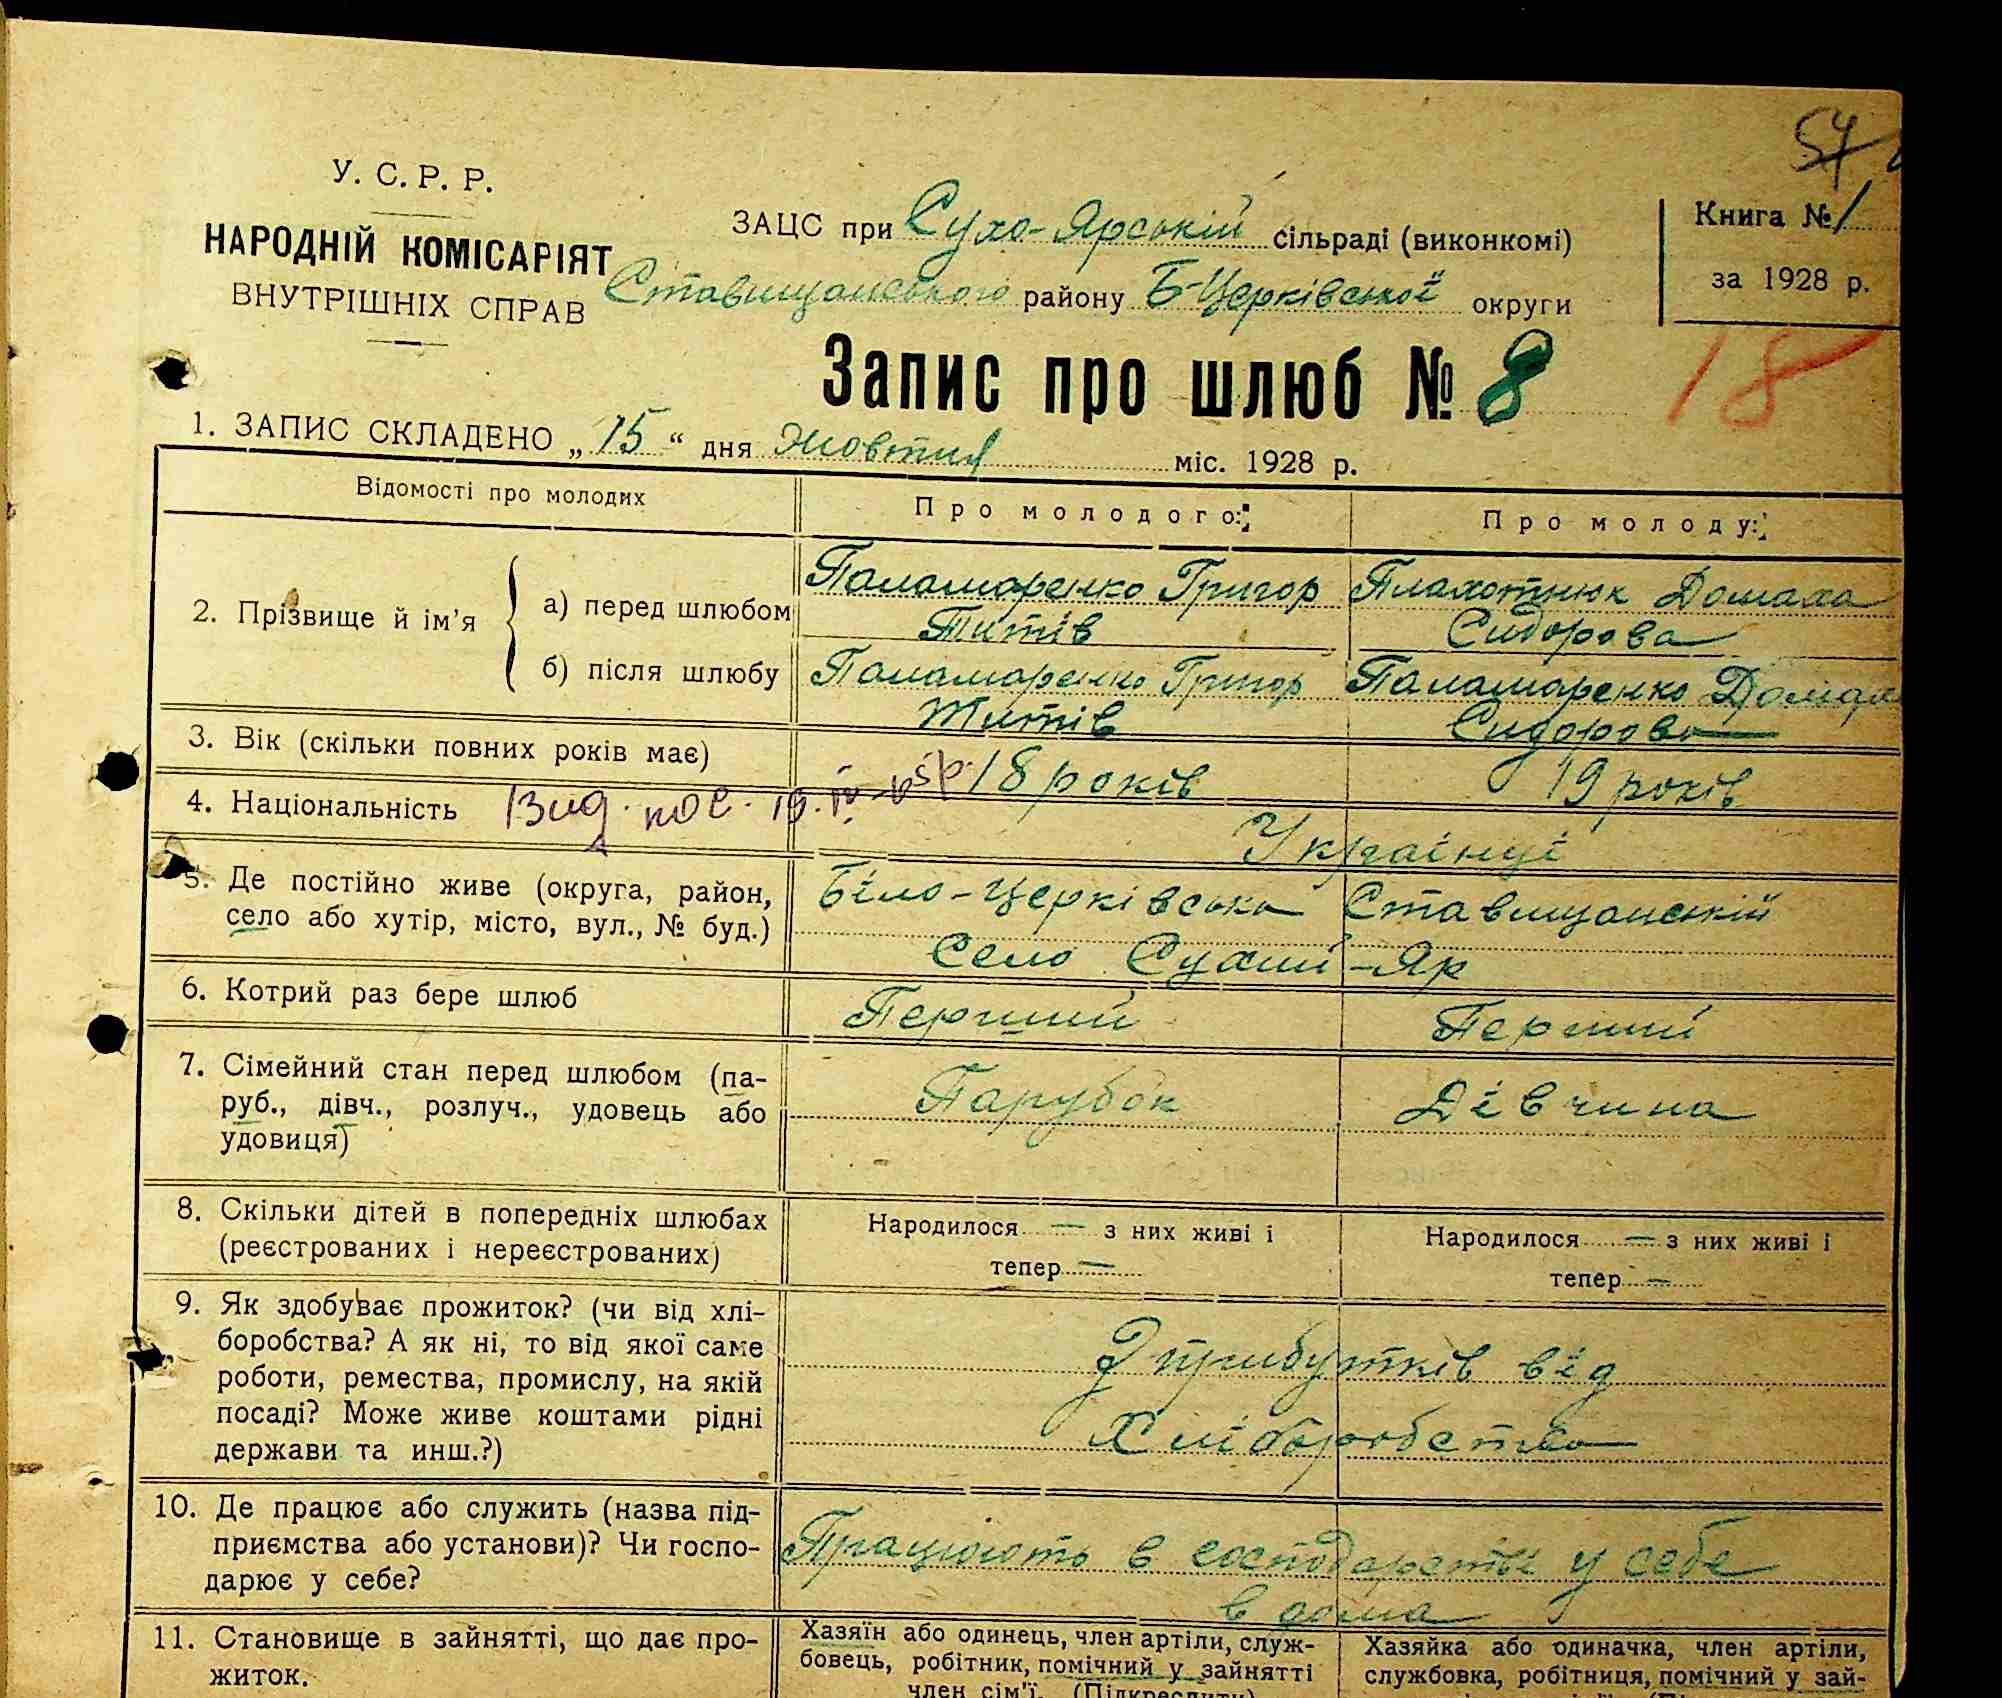 54
У. С. Р. Р.
НАРОДНІЙ КОМІСАРІЯТ
ВНУТРІШНІХ СПРАВ
ЗАЦС при Сухо-Ярській сільраді (виконкомі)
Ставищанського району Б-Церківської округи
Книга № 1
за 1928 р.
Запис про шлюб № 8
18
1. ЗАПИС СКЛАДЕНО „15“ дня Жовтня міс. 1928 р.
Відомості про молодих
Про молодого:
Про молоду:
2. Прізвище й ім'я
а) перед шлюбом
Паламаренко Григор
Титів
Плахотнюк Домаха
Сидорова
б) після шлюбу
Паламаренко Григор
Титів
Паламаренко Домах
Сидорова
3. Вік (скільки повних років має)
18 років
19 років
4. Національність
Вид. пос. 19. IV
Українці
5. Де постійно живе (округа, район,
село або хутір, місто, вул., № буд.)
Біло-Церківська Ставищанській
Село Сухий-Яр
6. Котрий раз бере шлюб
Перший
Перший
7. Сімейний стан перед шлюбом (па-
руб., дівч., розлуч., удовець або
удовиця)
Парубок
Дівчина
8. Скільки дітей в попередніх шлюбах
(реєстрованих і нереєстрованих)
Народилося — з них живі і
тепер —
Народилося — з них живі і
тепер —
9. Як здобуває прожиток? (чи від хлі-
боробства? А як ні, то від якої саме
роботи, ремества, промислу, на якій
посаді? Може живе коштами рідні
держави та инш.?)
З прибутків від
Хліборобства
10. Де працює або служить (назва під-
приємства або установи)? Чи госпо-
дарює у себе?
Працюють в господарстві у себе
в дома
11. Становище в зайнятті, що дає про-
житок.
Хазяїн або одинець, член артіли, служ-
бовець, робітник, помічний у зайнятті
член сім'ї. (Підкреслити)
Хазяйка або одиначка, член артіли,
службовка, робітниця, помічний у зай-